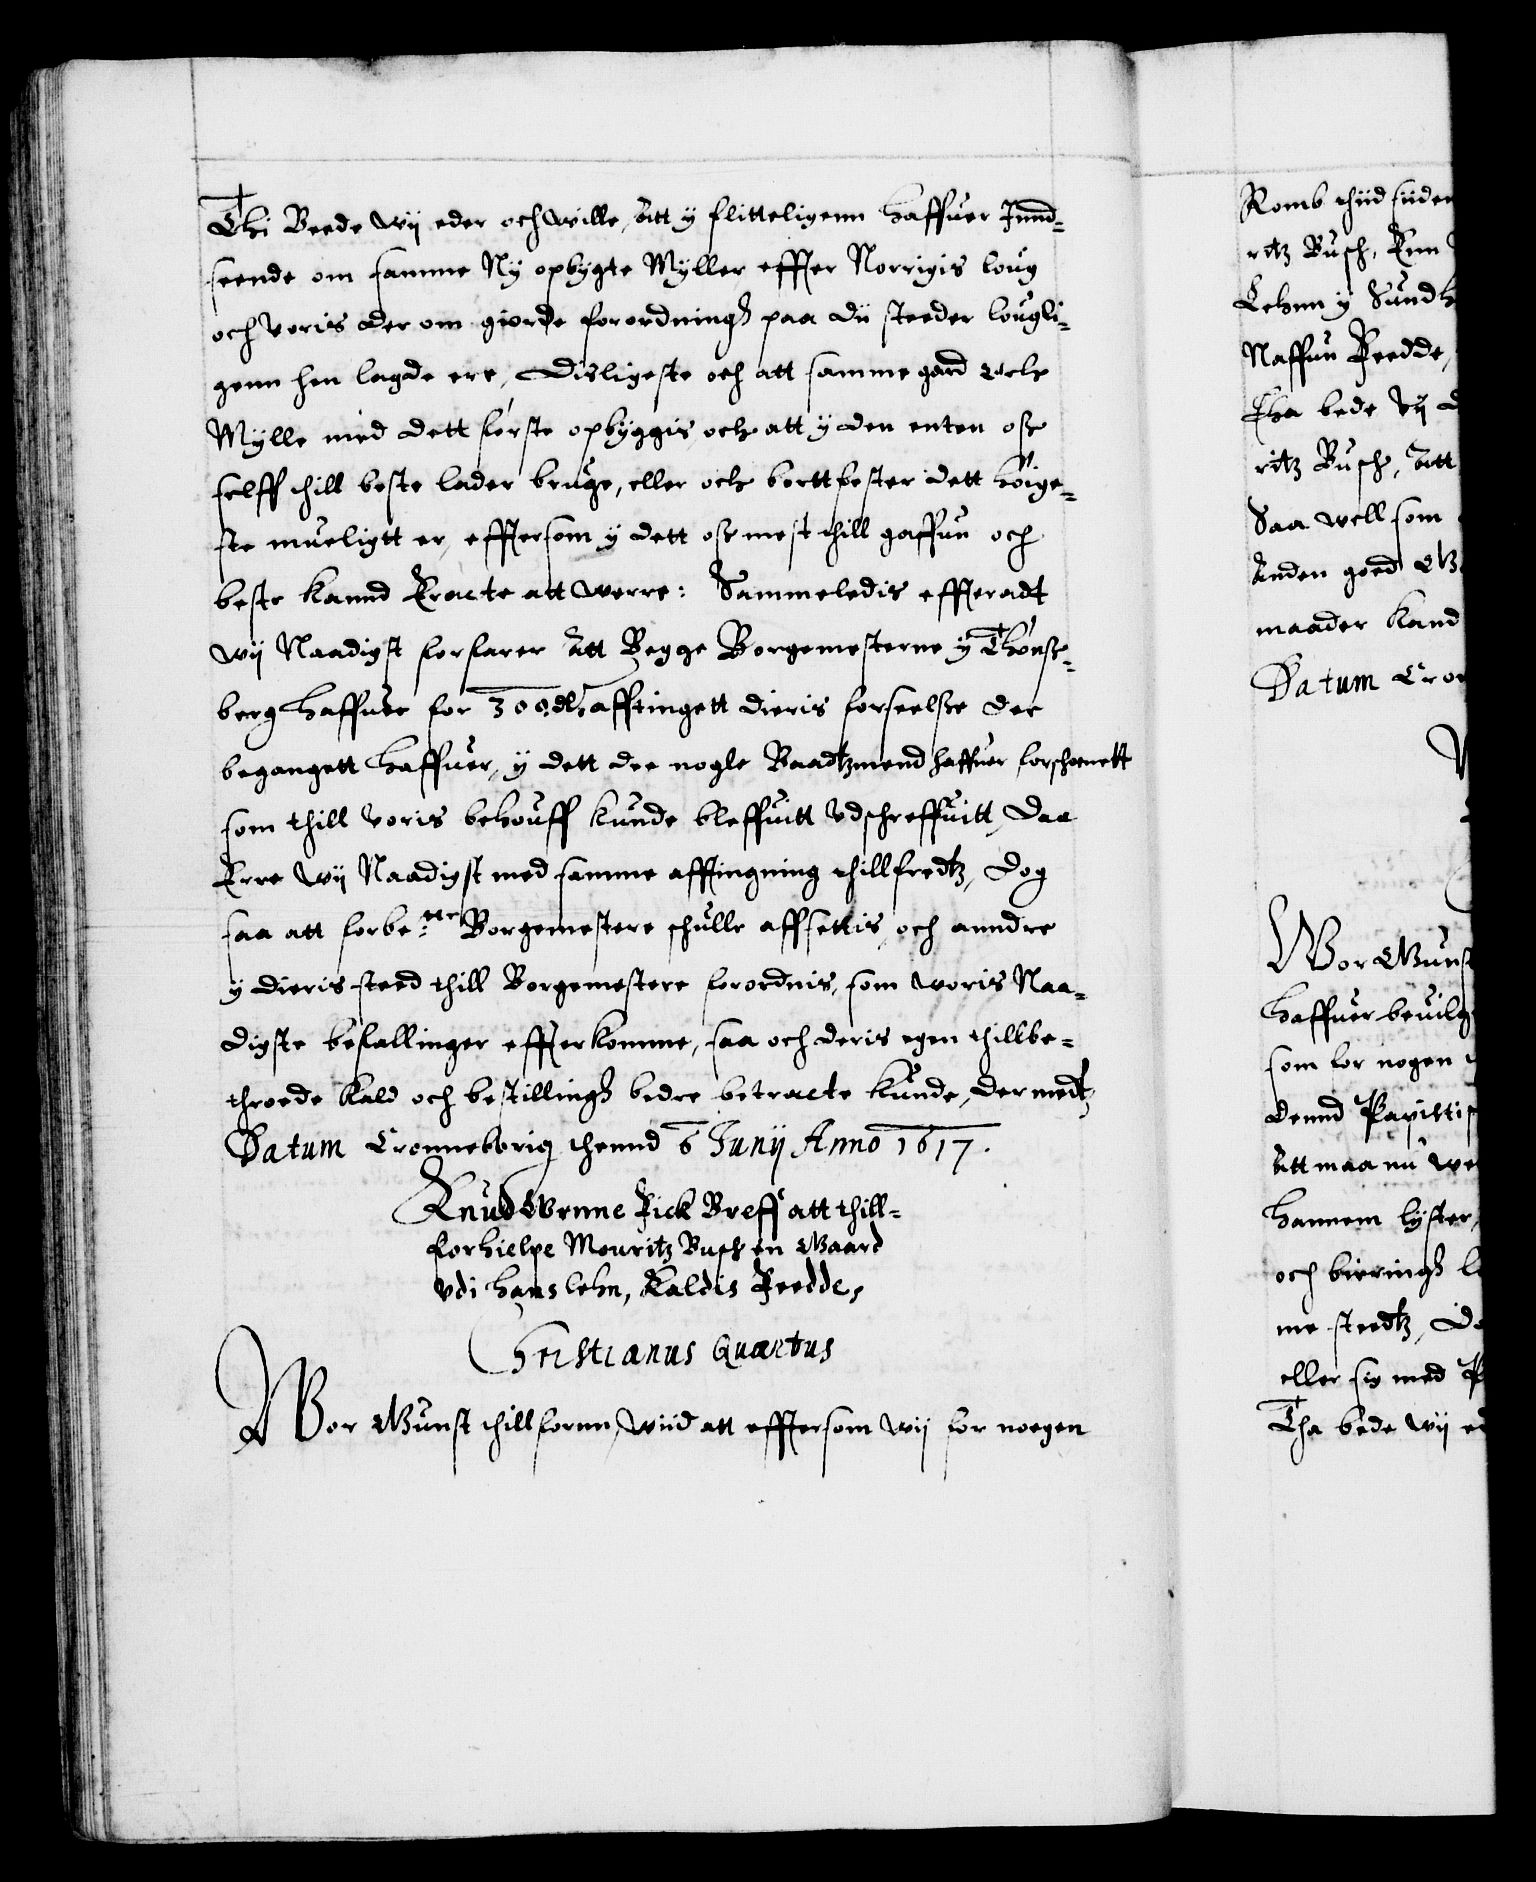 Thi Beede wij eder och wille, Att y flitteligenn haffuer Innd-
seende om samme Ny opbygte Myller effter Norrigis loug
och voris der om giorde forordningh paa dii steeder lougli-
genn hen lagde ere, Disligeste och att samme gard och
Mylle med dett første opbyggis och att y den enten oss
selff thill beste lader bruge, eller och bortfester dett høige-
ste mueligtt er, efftersom y dett oss mest thill gaffun och
beste kannd Eracte att werre: Sammeledis effteradt
wij Naadigst forfarer Att Begge Borgemesterne y Thønss-
berg haffuer for 300 dlr afftingett dieris forseelsse der
begangett haffuer, y dett dee nogle Baadtzmend haffuer forschoenett
som thill voris behouff kunde bleffuitt vdschreffuitt, Daa
Erre wij Naadigst med samme afftingning thillfredtz, Dog
saa att forbe:ne Borgemestere schulle affsettis, och anndre
y dieris steed thill Borgemestere forordnis, som woris Naa-
digste befallinger efferkomme, saa och deris egen thillbe-
throede Kald och bestillingh bedre betracte kunde, dermedt,
Datum Cronneborig thennd 6 Junij Anno 1617.
Knud Vrnne Fick Breff att thill-
forhielpe Mouritz Busch en Gaard
vdi hans lehn, Kaldis Feedde,
Christianus Quartus
Wor Gunst thillfornn, wiid att efftersom wij for noegen
Romb thiid siiden
ritz Busch, Enn
Lehnn y Sundh
Naffnn Feedde,
Tha bede vij
ritz Busch, Att
Saa well som
Anden goed
maader kand
Datum Cron
Wor Gunst
haffuer beuilg
som for nogen
dennd Papisti
Att maa nu we
hannem lyster,
och birringh
me steedtz, Do
eller sig med
Tha bede wij ed